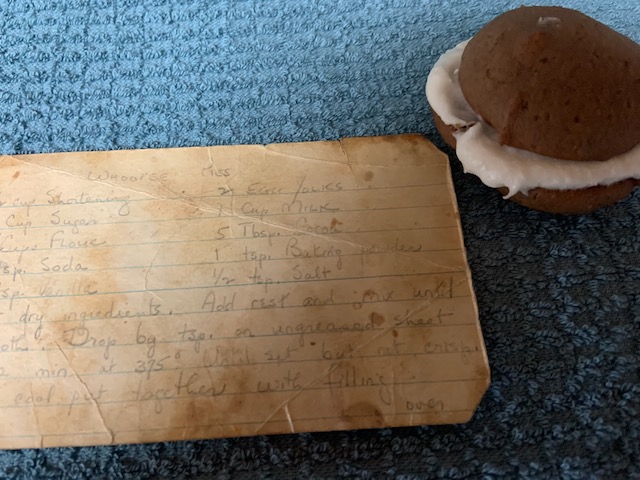 WHOOPEE MISS
cup Shortening 2 Egg Yolks
Cup Sugar 1 Cup MILK
Cups Flour 5 Tbsp. Cocoa
tsp. Soda 1 tsp. Baking powder
tsp. Vanilla 1/2 tsp. Salt
dry ingredients. Add rest and mix until
oth. Drop by tsp. on ungreased sheet
min. at 375° Until set but not crisp
cool put together with filling.
over